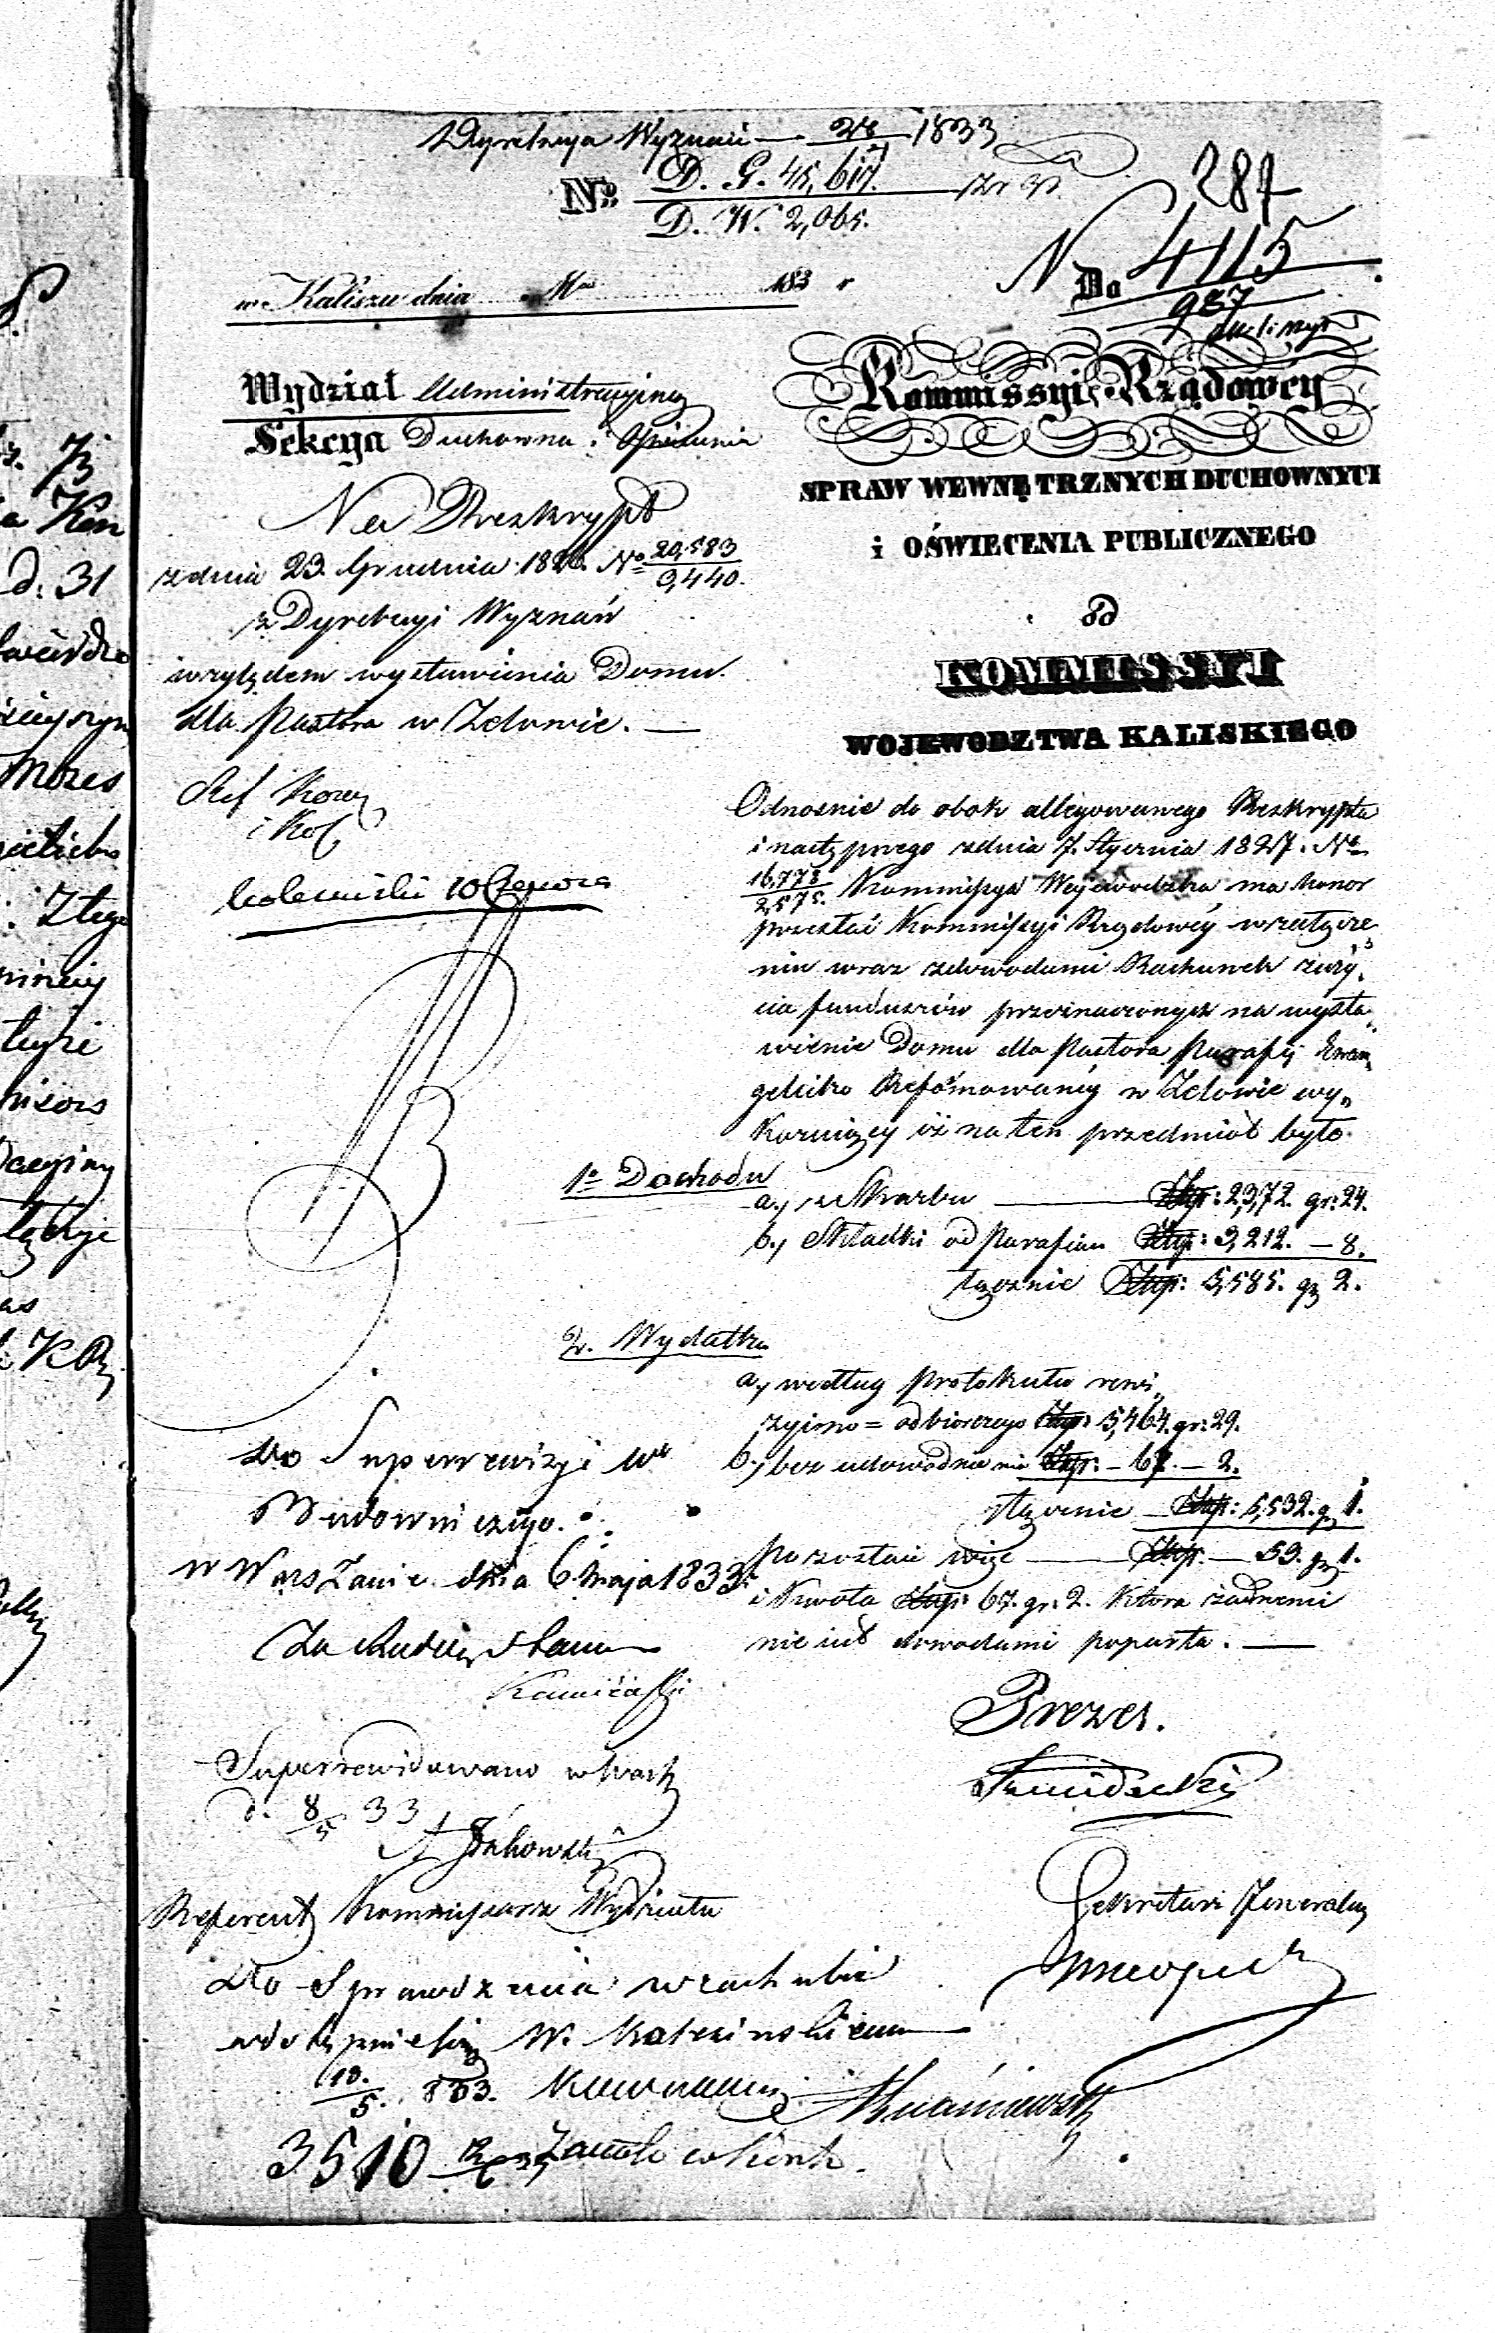 Dyrekcya Wyznań 28 1833
No. D. G. 45,617.
D. W. 2,065.
287
N 4115
987
w Kaliszu dnia Mca 183 r
Do
Wydział Administracyjny
Sekcya Duchowna i Opieunia
Kommissyi Rządowéy
SPRAW WEWNĘTRZNYCH DUCHOWNYCH
i OŚWIECENIA PUBLICZNEGO
od
KOMMISSYI
WOJEWODZTWA KALISKIEGO
Na Reskrypt
z dnia 23. Grudnia 1826. No 20,583
9,440.
z Dyrekcyi Wyznań
względem wystawienia Domu
dla Pastora w Zelowie. —
Ref
10 Czerwca
Odnosnie do obok allegowanego Reskryptu
i następnego z dnia 7. Stycznia 1827. No
16,773
2,575. Kommissya Wojewodzka ma honor
przesłać Kommissyi Rządowéy w załącze
niu wraz z dowodami Rachunek z uży„
cia funduszów przeznaczonych na wysta„
wienie Domu dla Pastora Parafij Ewan„
gelicko Reformowanéy w Zelowie wy„
kazuiący iż na ten przedmiot było
1o Dochodu
a., z Skarbu — Złp: 2,372. gr: 24.
b., Składki od Parafian Złp: 3,212. — 8.
łącznie Złp: 5,585. gr 2.
2. Wydatku
a., według protokułu rewi„
zyjno = odbiorczego Złp: 5,464. gr: 29.
b., bez udowodnienia Złp: — 67. — 2.
łącznie — Złp: 5,532. gr 1.
pozostaie więc — Złp. — 53. gr 1.
i kwota Złp: 67. gr: 2. która żadnemi
nie iest dowodami poparta. —
Do Superrewizyi
Budowniczego.
w Warszawie dnia 6 Maja 1833
Prezes.
Superrewidowano
d. 8/5 33
Referent Kommissarz Wydziału
Sekretarz Jeneralny
Do Sprawdzenia w rachubie
W.
10.
5. 833.
3510